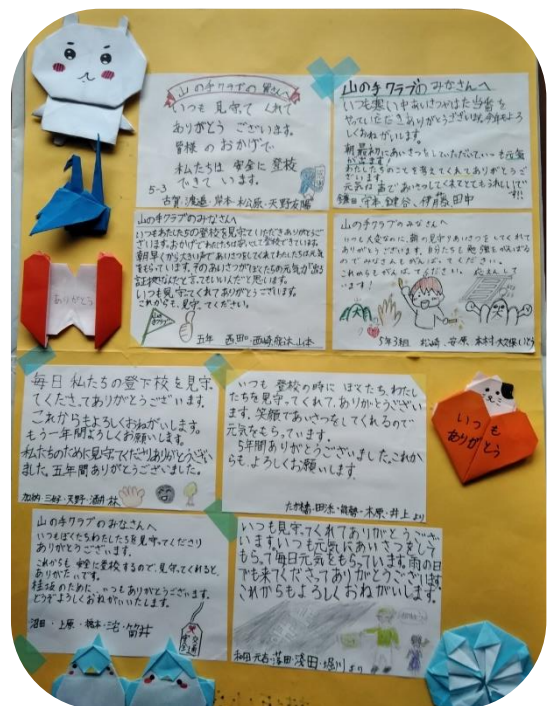 山の手クラブの皆さんへ
いつも見守ってくれて
ありがとうございます。
皆様のおかげで
私たちは安全に登校
できています。
5-3
古賀・渡邉・岸本・松原・天野
山の手クラブのみなさんへ
いつも寒い中あいさつやはた当番を
やっていただきありがとうございます。今年もよろ
しくおねがいします。
朝最初にあいさつをしていただいていつも元気
が出ます!
わたしたちのことを考えてくれてありがとうご
ざいます。
元気にあいさつしてくれてとてもうれしいです!!
伊藤 田中
山の手クラブのみなさんへ
いつもわたしたちの登校を見守ていただきありがとうござ
います。おかげでわたしたちは安心して登校できています。
朝早くから大きい声であいさつをしてくれてわたしたちは元気
をもらっています。そのあいさつがぼくたちの元気が出る
証拠なんだと言ってもいいんだと思います。
いつも見守ってくれてありがとうございます。
これからも見守ってください。
五年 西田
山本
山の手クラブのみなさんへ
いつも大変なのに、朝の見守りあいさつをしてくれて
ありがとうございます。自分たちも勉強をがんばる
のでみなさんもがんばってください。
これからもがんばってください。応えんして
います!
5年3組 松崎・安原 木村 大久保 いとう
ありがとう
毎日私たちの登下校を見守
てくださってありがとうございます。
これからもよろしくおねがいします。
もう一年間よろしくお願いします。
私たちのために見守てくださりありがとうござい
ました。五年間ありがとうございました。
加納・三好・天野・酒井・林
いつも登校の時にぼくたち、わたし
たちを見守ってくれて、ありがとうござい
ます。笑顔であいさつをしてくれるので
元気をもらっています。
5年間ありがとうございました。これか
らも、よろしくお願いします。
木原・井上より
いつも
ありがとう
山の手クラブのみなさんへ
いつもぼくたちわたしたちを見守ってくださり
ありがとうございます。
これからも安全に登校するので、見守てくれると、
ありがたいです。
桂坂のために、いつもありがとうございます。
どうぞよろしくおねがいいたします。
沼田・上原・橋本・宅・笛井
いつも見守ってくれてありがとうござい
います。いつも元気にあいさつをして
もらって毎日元気をもらいます。雨の日
でも来てくださってありがとうございます。
これからもよろしくおねがいします。
和田・元古・澤田・濱田・堀川より